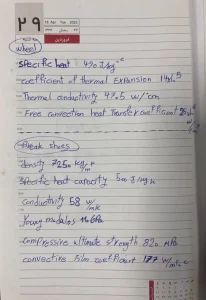 29
18 Apr Tue 2023
wheel
specific heat : 490 J/kg.c
coefficient of thermal EXPansion
Thermal conductivity 47.5 w/m
Free convection heat Transfer coefficient
Break shoes
density 7250 kg/m
specific heat capacity 500 J/kg
Conductivity 58 w/mk
Young modulus GPa
compressive ultimate strength 820 MPa
convective film coefficient 177